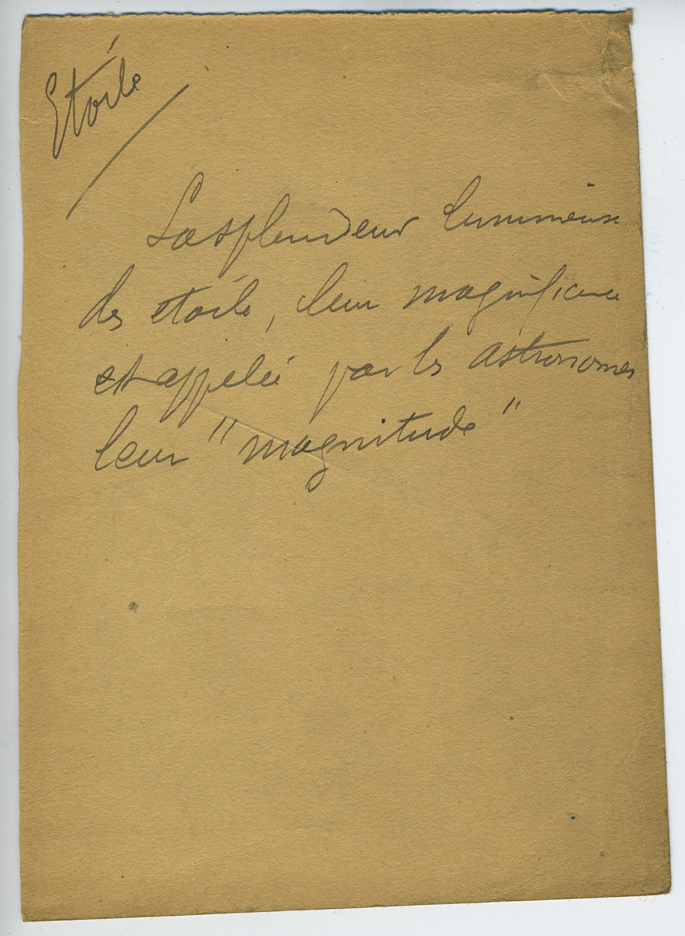 Etoile
La splendeur lumineuse
des etoiles, leur magnificence
est appelée par les astronomes
leur "magnitude"